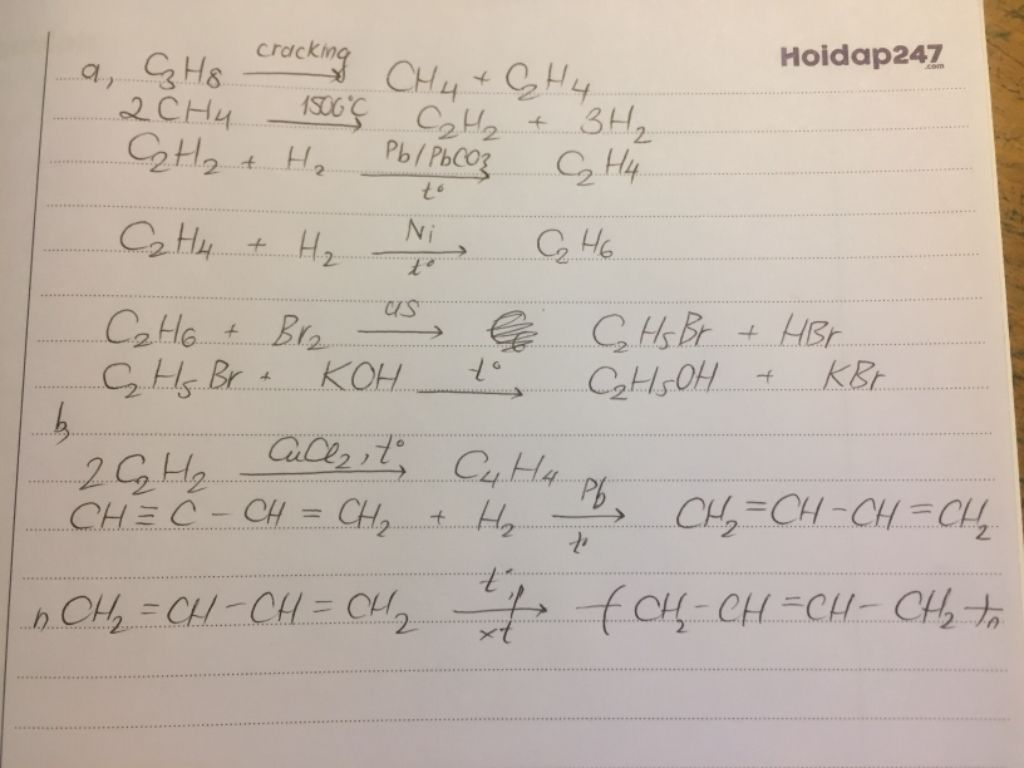 Hoidap247
.com
a, C3H8 cracking → CH4 + C2H4
2CH4 1500°C → C2H2 + 3H2
C2H2 + H2 Pb/PbCO3 t° → C2H4
C2H4 + H2 Ni t° → C2H6
C2H6 + Br2 as → C2H5Br + HBr
C2H5Br + KOH t° → C2H5OH + KBr
b,
2C2H2 CuCl2, t° → C4H4
CH≡C-CH=CH2 + H2 Pb t° → CH2=CH-CH=CH2
n CH2=CH-CH=CH2 t°, p xt → (CH2-CH=CH-CH2)n